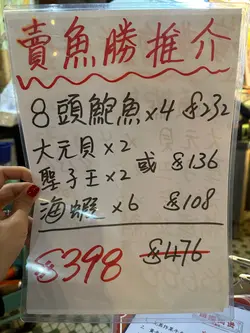 賣魚勝推介
8頭鮑魚×4 $232
大元貝×2
或 $136
聖子王×2
海蝦×6 $108
$398 $476